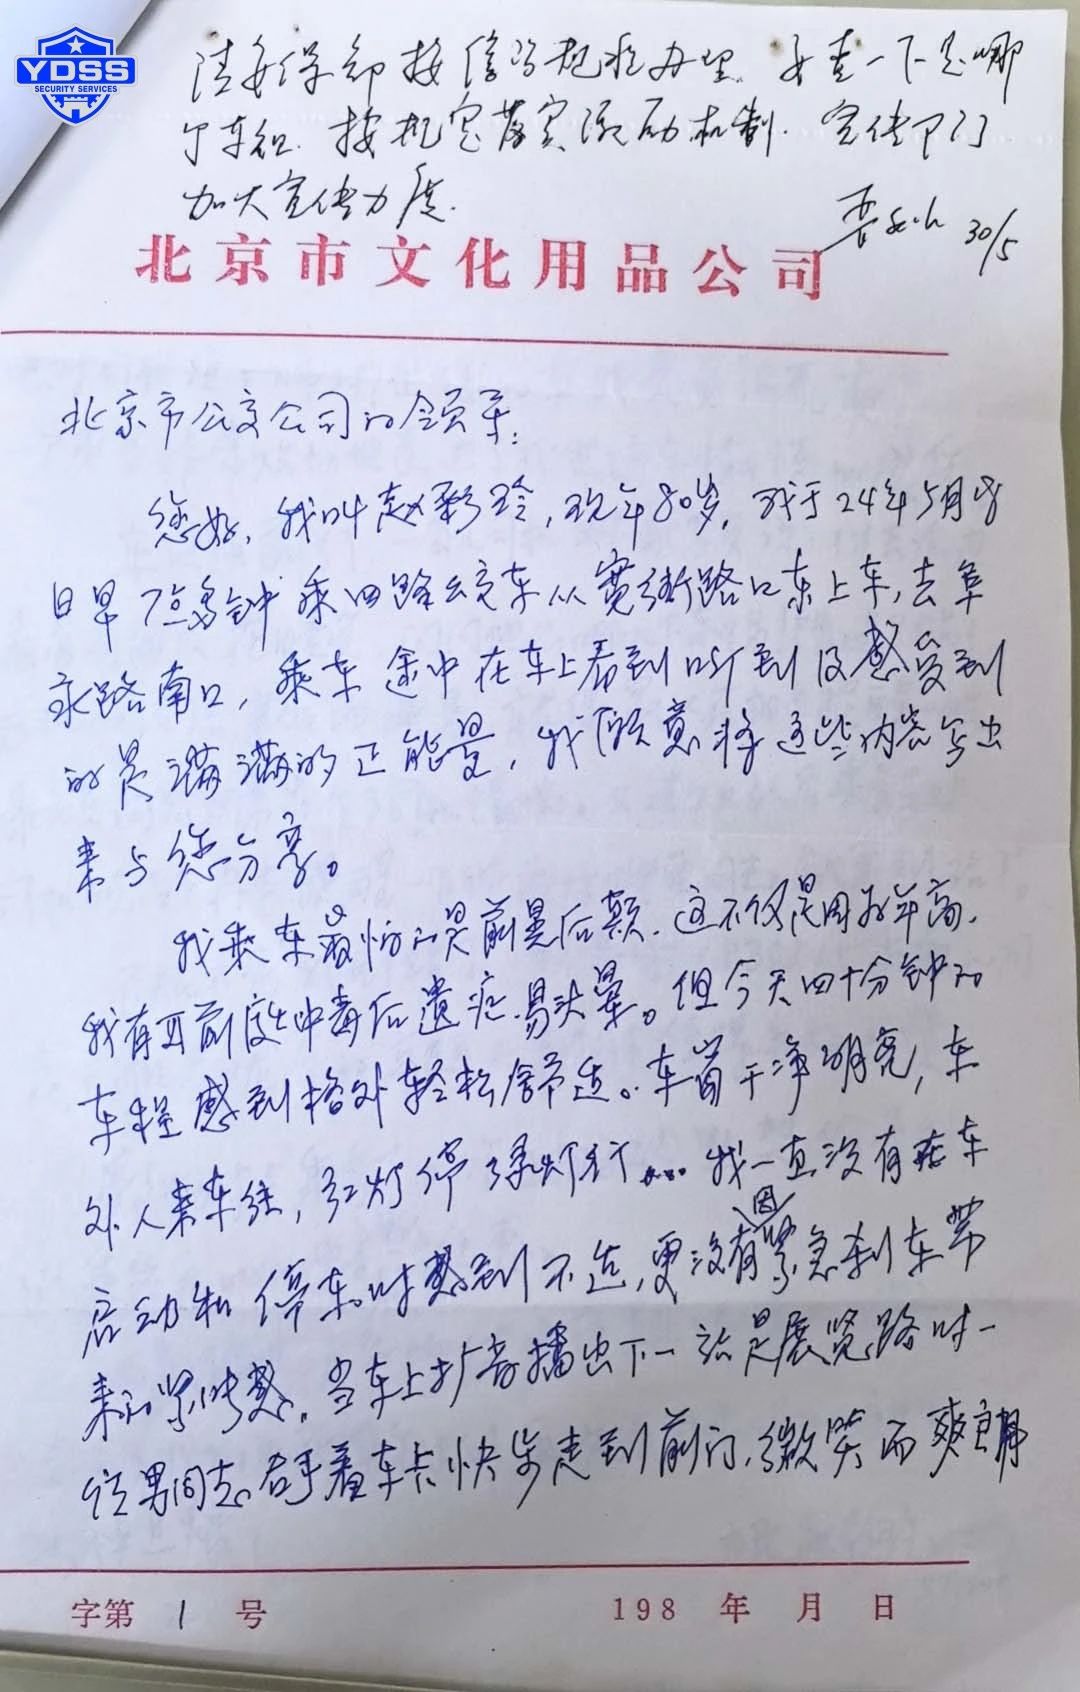 YDSS
SECURITY SERVICES
请安保部按信访规程办理. 并查一下是哪
个车组. 按规定落实激励机制. 宣传部门
加大宣传力度.
30/5
北京市文化用品公司
北京市公交公司的领导:
您好, 我叫赵彩玲, 现年80岁, 我于24年5月8
日早7点多钟乘四路公交车从宽街路口东上车, 去阜
永路南口, 乘车途中在车上看到听到及感受到
的是满满的正能量, 我愿意将这些内容写出
来与您分享。
我乘车最怕的是前晃后颠. 这不仅是因为年高.
我有耳前庭中毒后遗症. 易头晕。但今天四十分钟的
车程感到格外轻松舒适。车窗干净明亮, 车
外人来车往, 红灯停绿灯行…… 我一直没有在车
启动和停车时感到不适, 更没有因紧急刹车带
来的紧张感。当车上扩音播出下一站是展览路时一
位男同志右手拿着车卡快步走到前门, 微笑而爽朗
字第 1 号 198 年 月 日